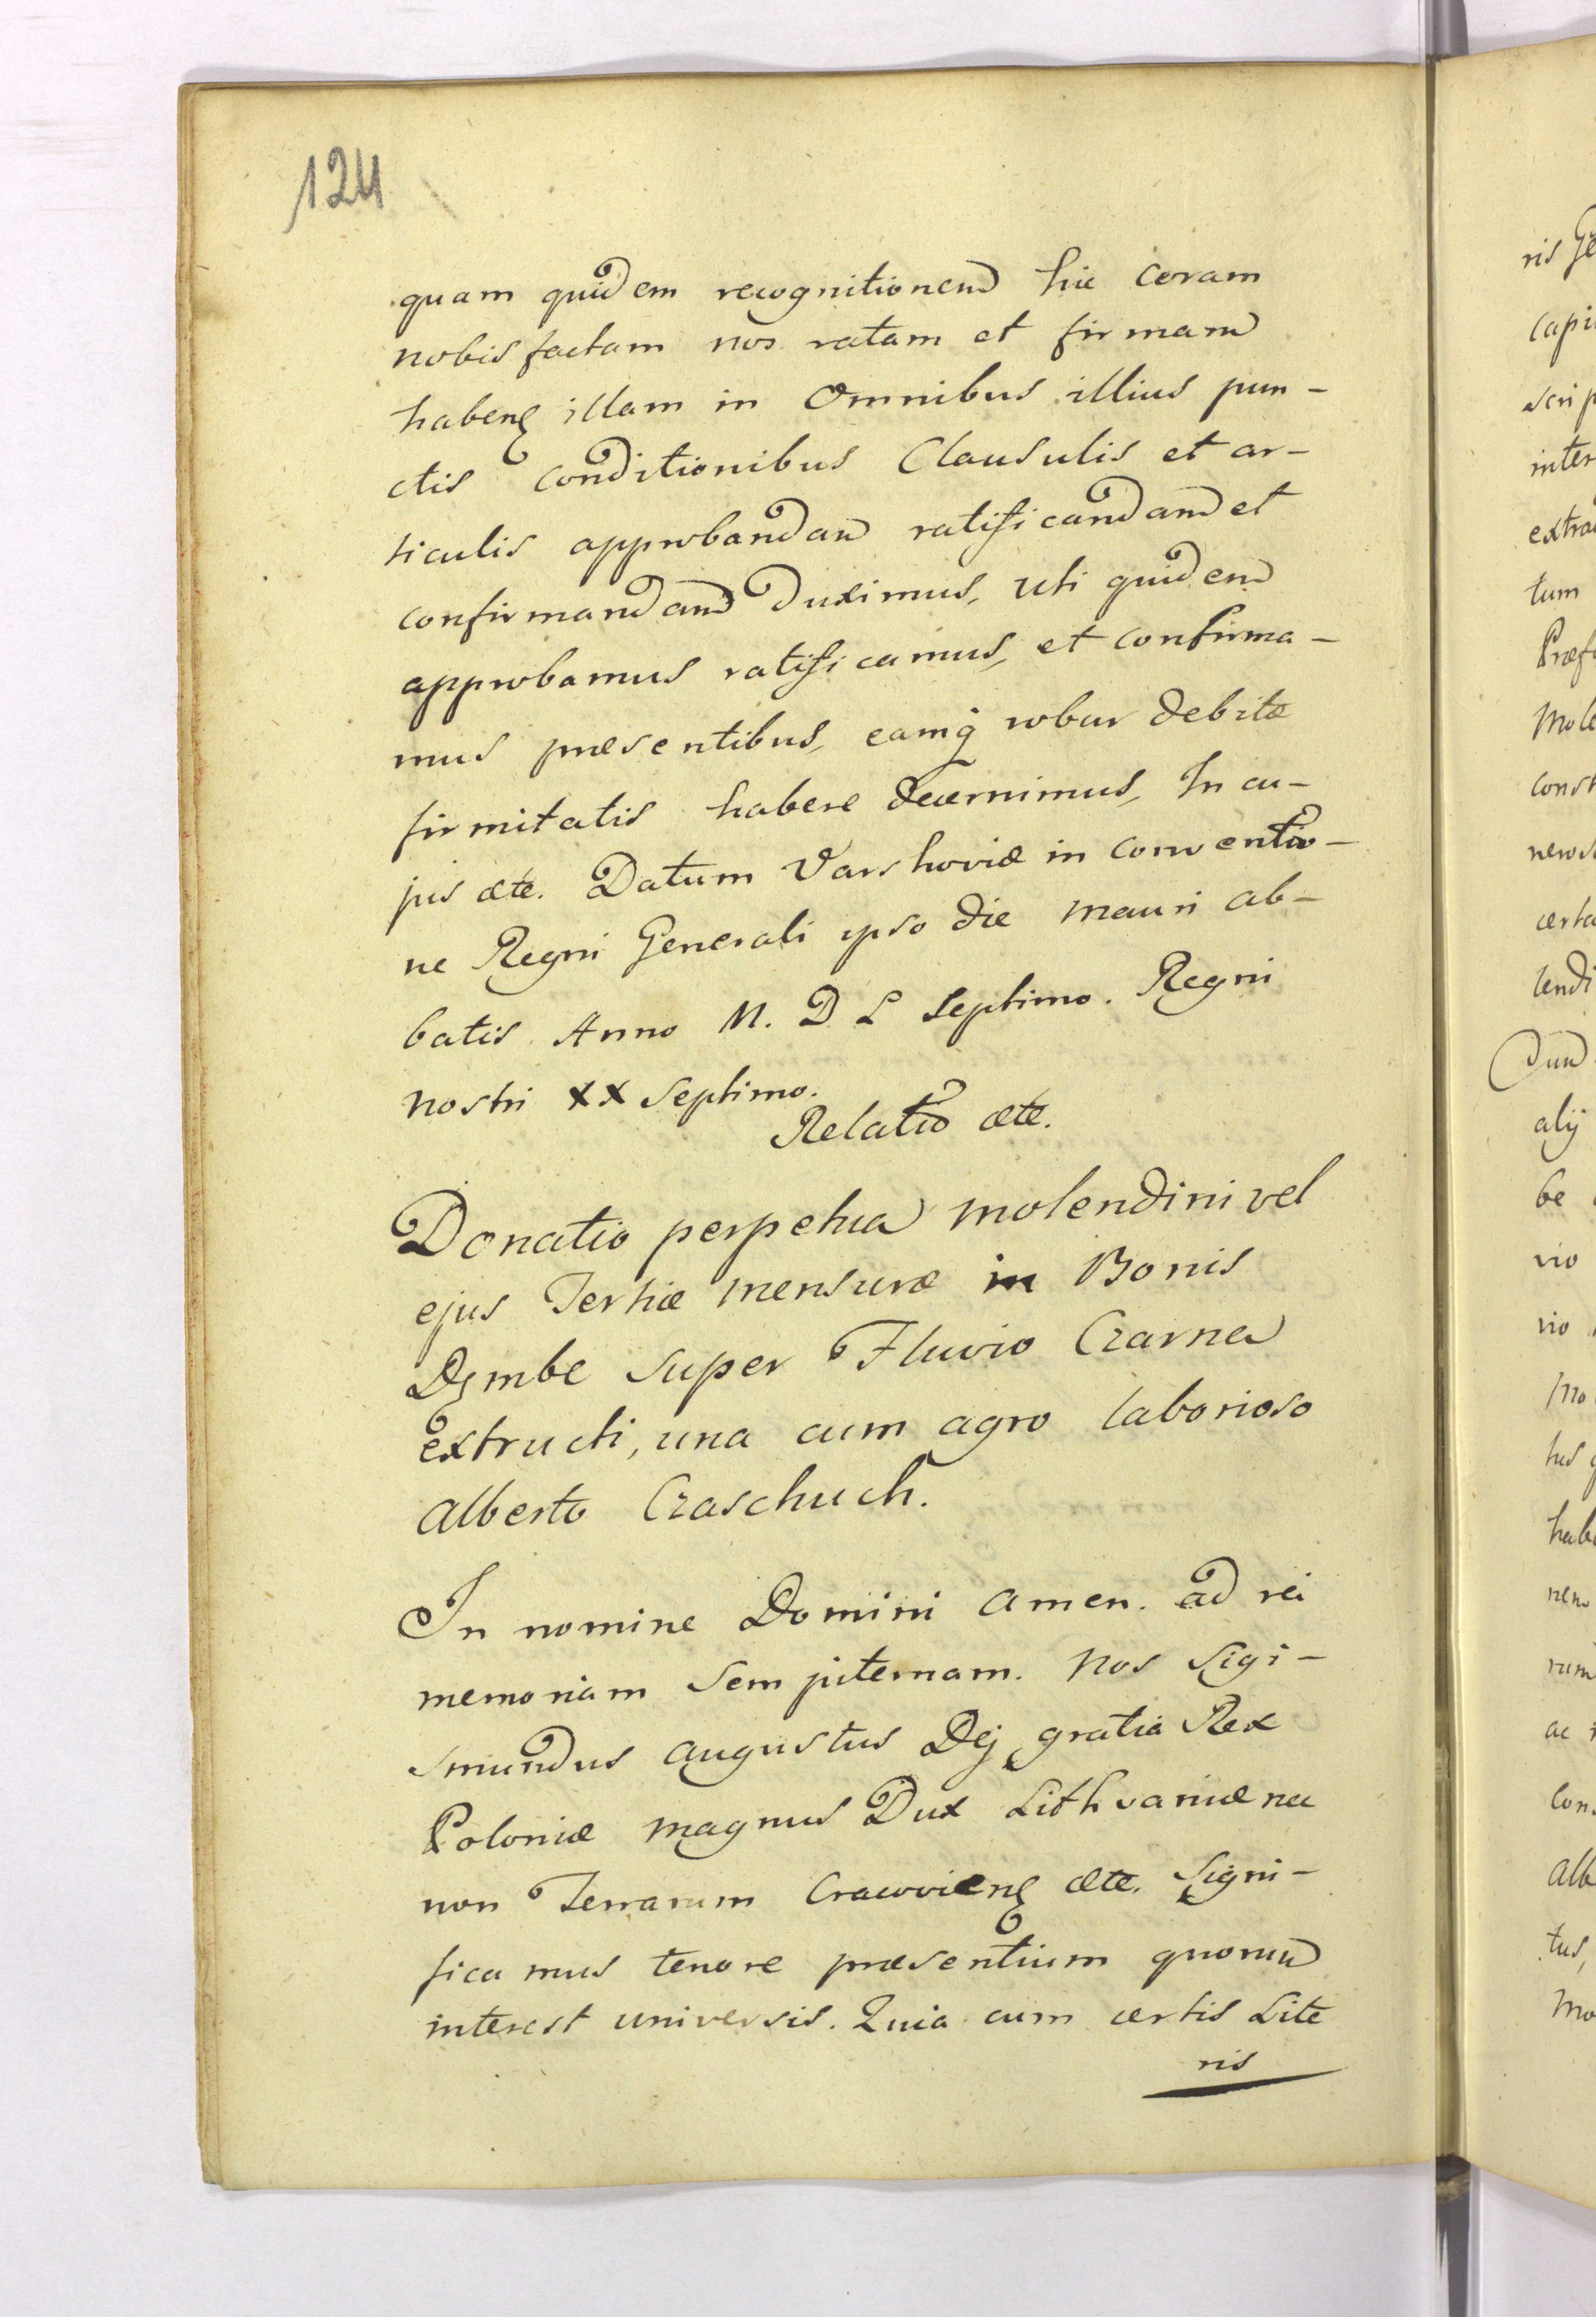 124
quam quidem recognitionem hic coram
nobis factam nos ratam et firmam
habenẽ illam in omnibus illius pun-
ctis conditionibus Clausulis et ar-
ticulis approbandam ratificandam et
confirmandam Duximus, uti quidem
approbamus ratificamus, et confirma-
mus præsentibus, eamq̃ robur debitæ
firmitatis habere decernimus, In cu-
jus ætc. Datum Varshoviæ in conventio-
ne Regni Generali ipso die Mauri ab-
batis Anno M. D L Septimo. Regni
nostri XX Septimo.
Relatio ætc.
Donatio perpetua molendini vel
ejus Tertiæ mensuræ in Bonis
Dembe super Fluvio Czarna
extructi, una cum agro laborioso
Alberto Czaschuch.
In nomine Domini amen. ad rei
memoriam sempiternam. Nos Sigi-
smundus Augustus Dej gratia Rex
Poloniæ magnus Dux Lithvaniæ nec
non Terrarum Cracovienẽ ætc. Signi-
ficamus tenore præsentium quorum
interest universis. Quia cum certis Lite
ris